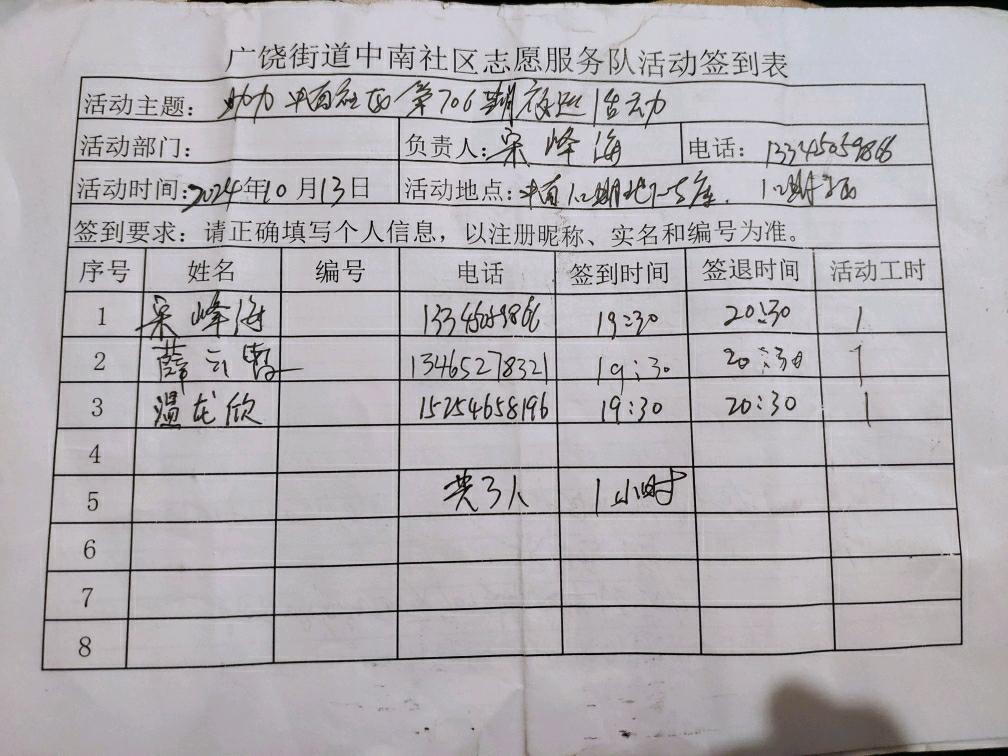 广饶街道中南社区志愿服务队活动签到表
活动主题: 助力中南社区第706期夜巡活动
活动部门: 负责人: 宋峰海 电话: 13345059866
活动时间: 2024年10月13日 活动地点: 中南1.2期
签到要求：请正确填写个人信息，以注册昵称、实名和编号为准。
序号 姓名 编号 电话 签到时间 签退时间 活动工时
1 宋峰海 19:30 20:30 1
2 薛 13465278321 19:30 20:30 1
3 温龙欣 15254658196 19:30 20:30 1
4
5 共3人 1小时
6
7
8